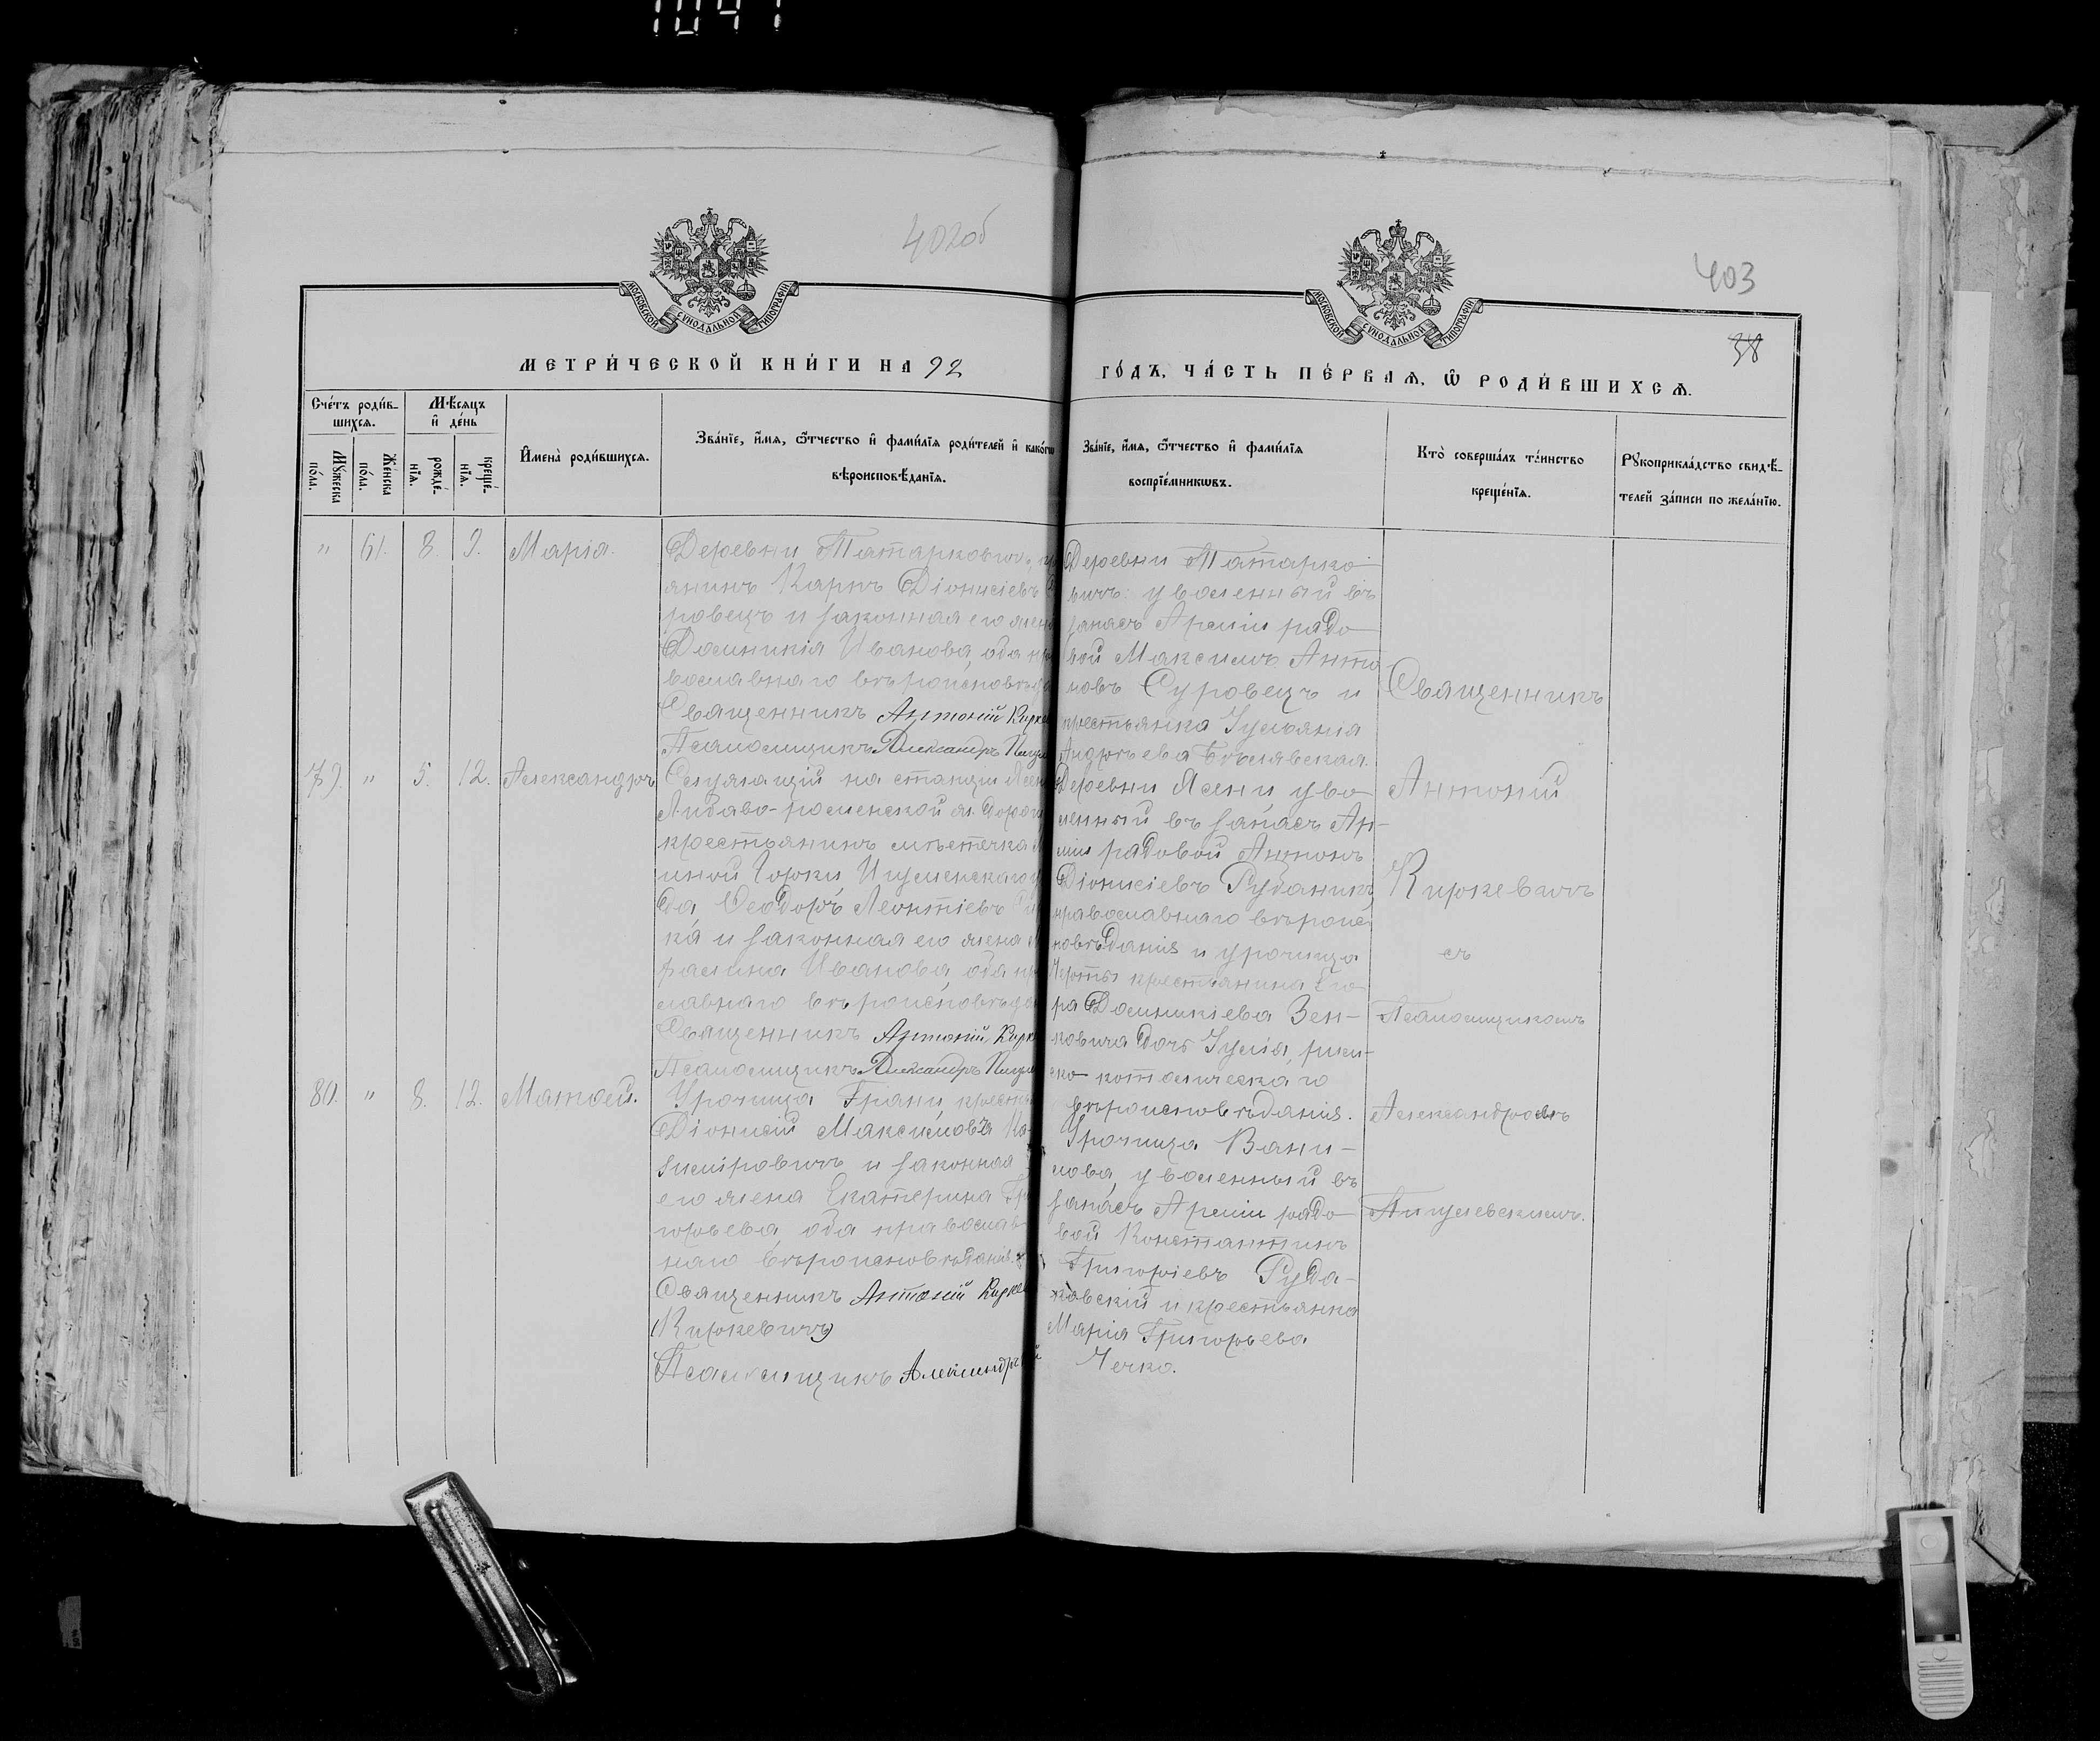 1041
402об
403
38
МОСКОВСКОЙ СѴНОДАЛЬНОЙ ТИПОГРАФІИ
МОСКОВСКОЙ СѴНОДАЛЬНОЙ ТИПОГРАФІИ
МЕТРИ́ЧЕСКОЙ КНИ́ГИ НА 92
ГО́ДЪ, ЧА́СТЬ ПЕ́РВАѦ, Ѿ РОДИ́ВШИХСѦ.
Сче́тъ роди́в-
шихсѧ.
Мꙋ́жеска
по́ла.
Же́нска
по́ла.
Мѣ́сѧцъ
и҆ де́нь
рожде́-
нїѧ.
креще́-
нїѧ.
И҆мена̀ роди́вшихсѧ.
Зва́нїе, и҆́мѧ, ѻ҆́тчество и҆ фами́лїѧ роди́телей и҆ како́гѡ
вѣроисповѣ́данїѧ.
Зва́нїе, и҆́мѧ, ѻ҆́тчество и҆ фами́лїѧ
воспрїе́мникѡвъ.
Кто̀ соверша́лъ та́инство
креще́нїѧ.
Рꙋкоприкла́дство свидѣ́-
телей за́писи по жела́нїю.
" 61. 8. 9. Марія.
Деревни Татарковичъ,
янинъ Карпъ Діонисіевъ
ровецъ и законная его жена
Доминикія Иванова, оба пра
вославнаго вѣроисповѣда
Священникъ Антоній Кирке
Псаломщикъ Александръ
Деревни Татарко
вичъ: уволенный въ
запасъ Арміи рядо
вой Максимъ Анто
новъ Суровецъ и
крестьянка Іуліанія
Андреева Бѣлявская.
79. " 5. 12. Александръ
Служащій на станціи Ясен
Либаво-роменской ж. дороги
крестьянинъ мѣстечка
иной Горки, Игуменскаго у
да, Ѳеодоръ Леонтіевъ
ка и законная его жена
Иванова, оба пра
славнаго вѣроисповѣда
Священникъ Антоній Кирке
Псаломщикъ Александръ
Деревни Ясени уво
ленный въ запасъ Ар-
міи рядовой Антонъ
Діонисіевъ Рубаникъ,
православнаго вѣроис
повѣданія и урочища
крестьянина Его
ра Доминикіева Зен-
ковича дочь Іулія, рим-
ско-католическаго
вѣроисповѣданія.
80. " 8. 12. Матѳей.
Урочища Грани, кресть
Діонисій Максимовъ Ка-
зиміровичъ и законная
его жена Екатерина Гри
горьева, оба православ
наго вѣроисповѣданія.
Священникъ Антоній Кирке
(Киркевичъ)
Псаломщикъ Александръ
Урочища Вани-
лова, уволенный въ
запасъ Арміи рядо
вой Константинъ
Григоріевъ Руда-
ковскій и крестьянка
Марія Григорьева
Чечко.
Священникъ
Антоній
Киркевичъ
съ
Псаломщикомъ
Александромъ